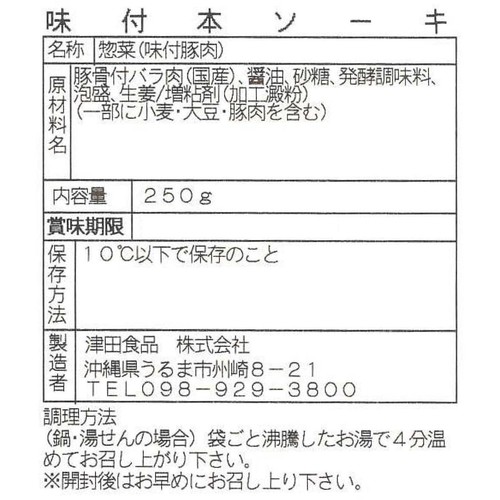 味付本ソーキ
名称 惣菜(味付豚肉)
原材料名 豚骨付バラ肉(国産)、醤油、砂糖、発酵調味料、
泡盛、生姜/増粘剤(加工澱粉)
(一部に小麦・大豆・豚肉を含む)
内容量 250g
賞味期限
保存方法 10℃以下で保存のこと
製造者 津田食品 株式会社
沖縄県うるま市州崎8-21
TEL098-929-3800
調理方法
(鍋・湯せんの場合) 袋ごと沸騰したお湯で4分温
めてお召し上がり下さい。
※開封後はお早めにお召し上り下さい。